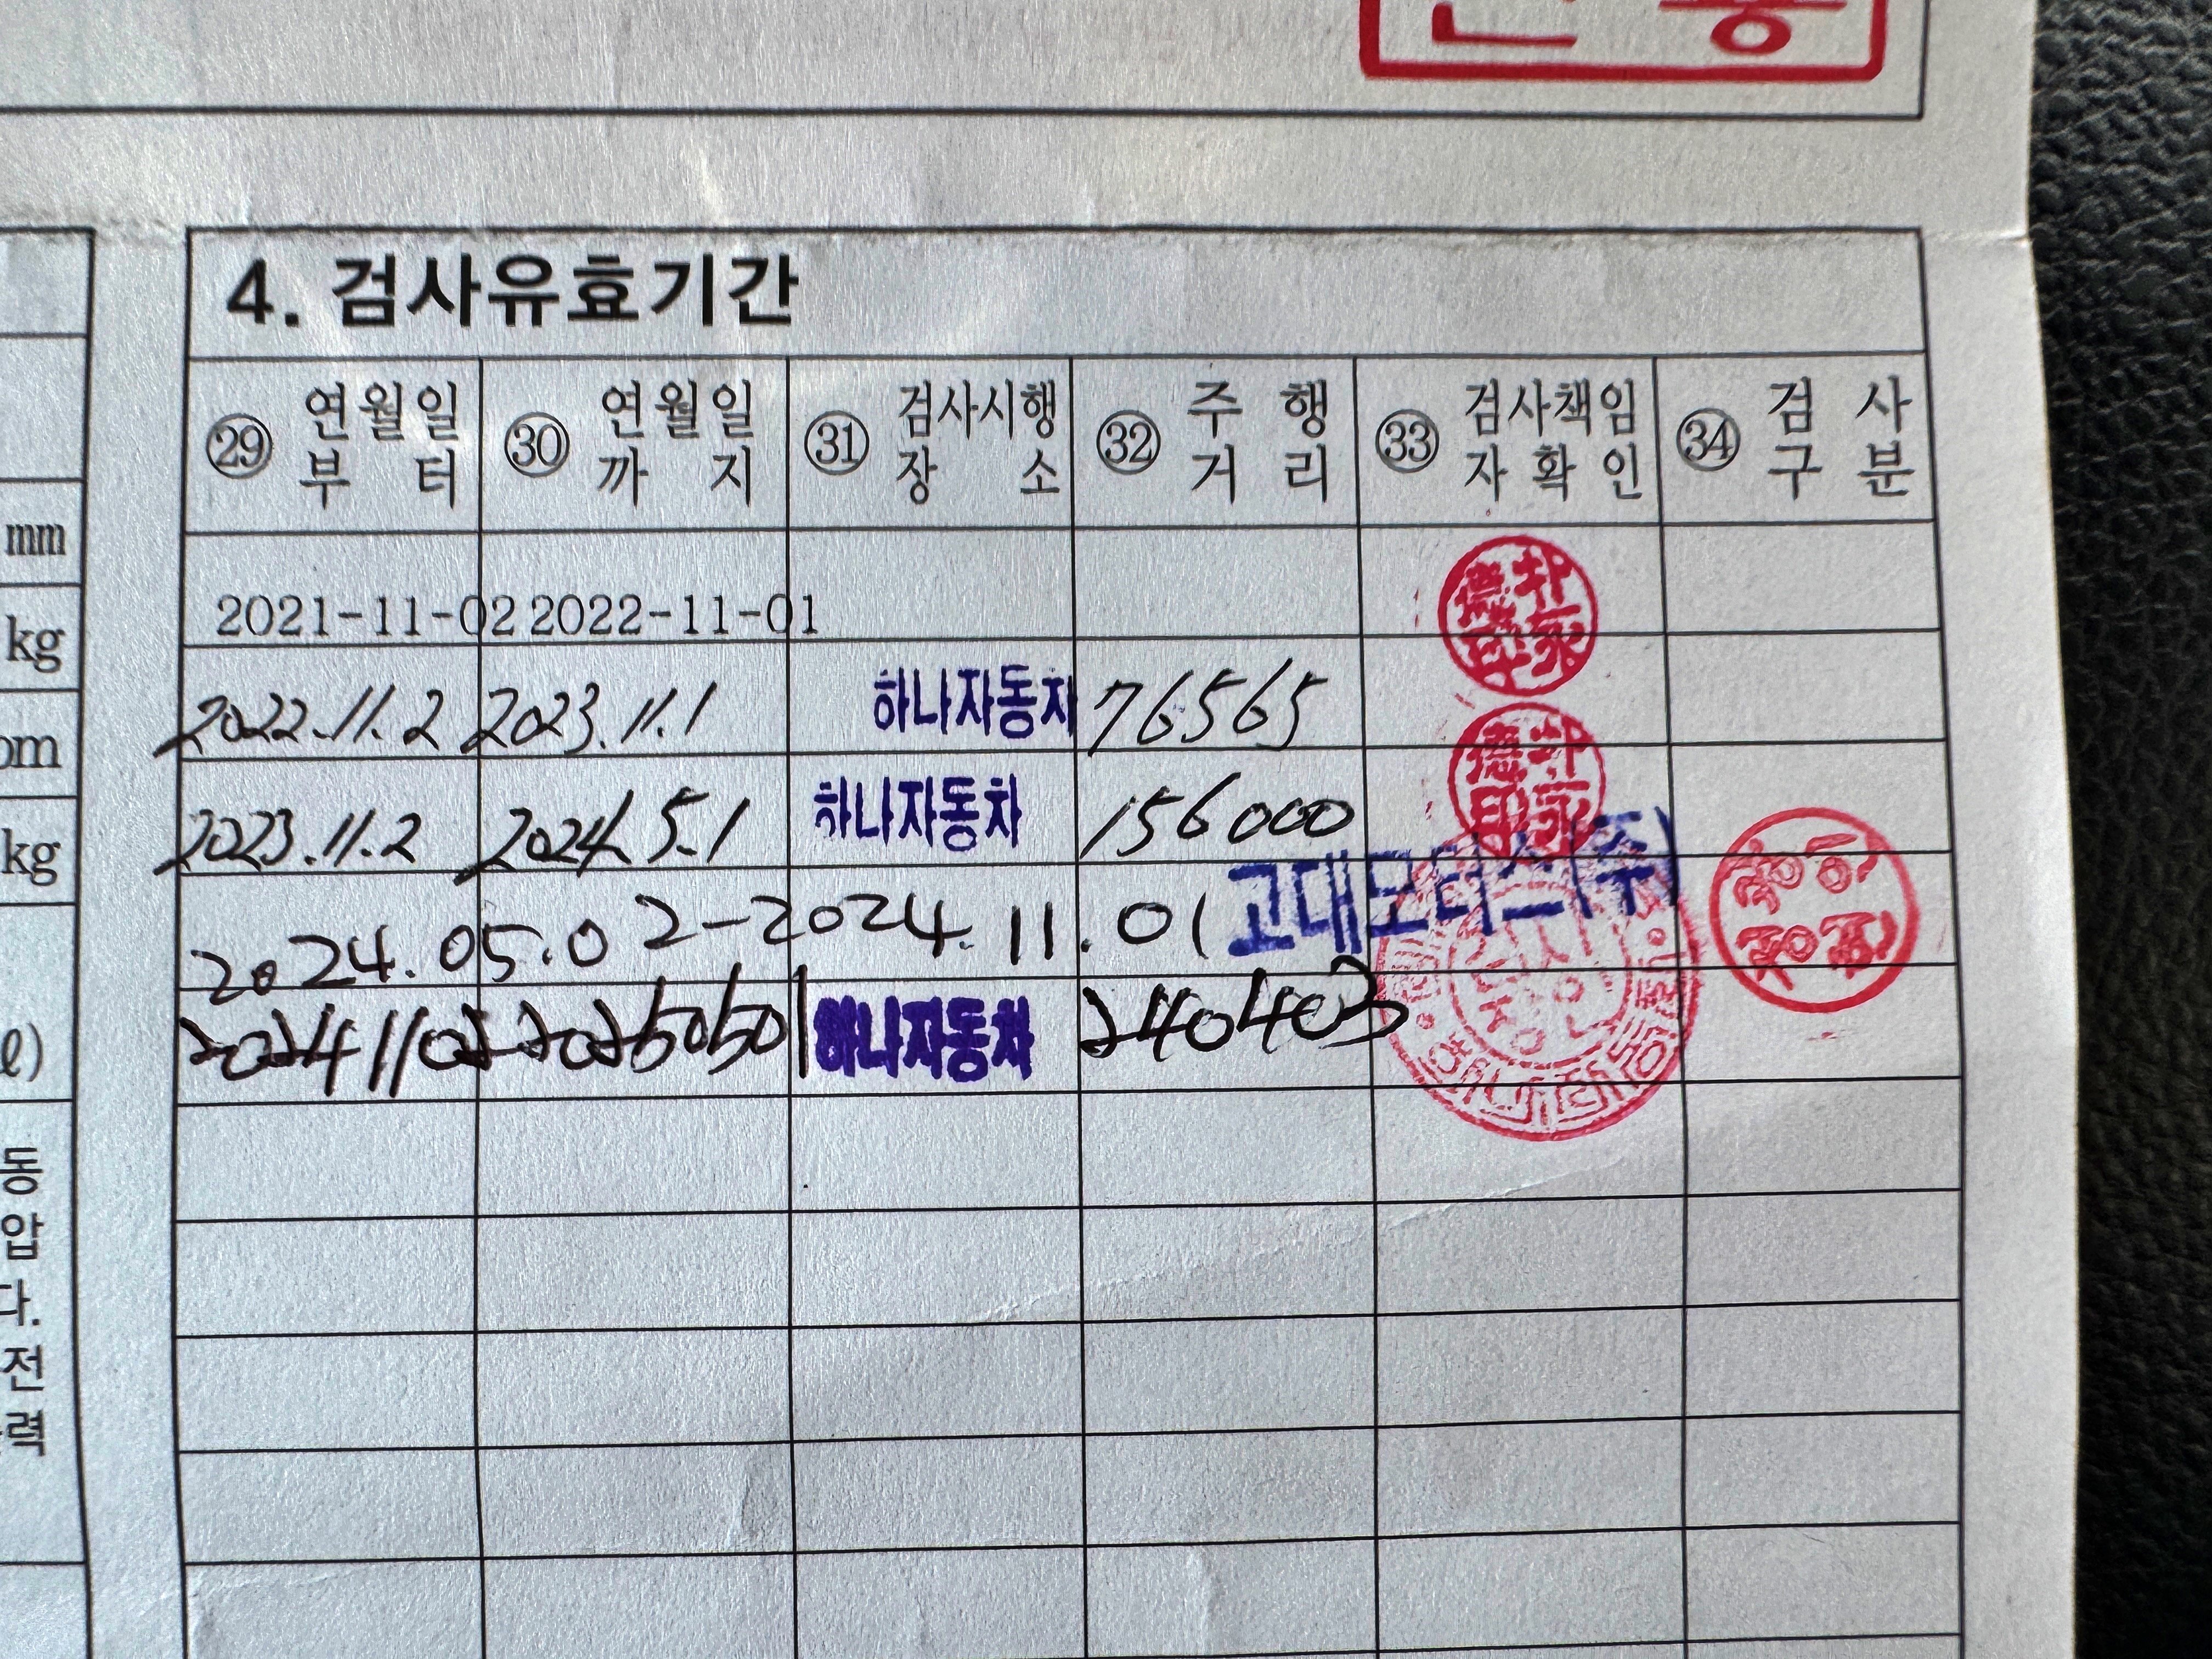 mm
kg
kg
ℓ)
동
압
다.
전
력
4. 검사유효기간
㉙ 연월일부터 ㉚ 연월일까지 ㉛ 검사시행장소 ㉜ 주행거리 ㉝ 검사책임자확인 ㉞ 검사구분
2021-11-02 2022-11-01
2022.11.2 2023.11.1 하나자동차 76565
2023.11.2 2024.5.1 하나자동차 156000
2024.05.02-2024.11.01 고대모터스(주)
20241102 20250501 하나자동차 240403